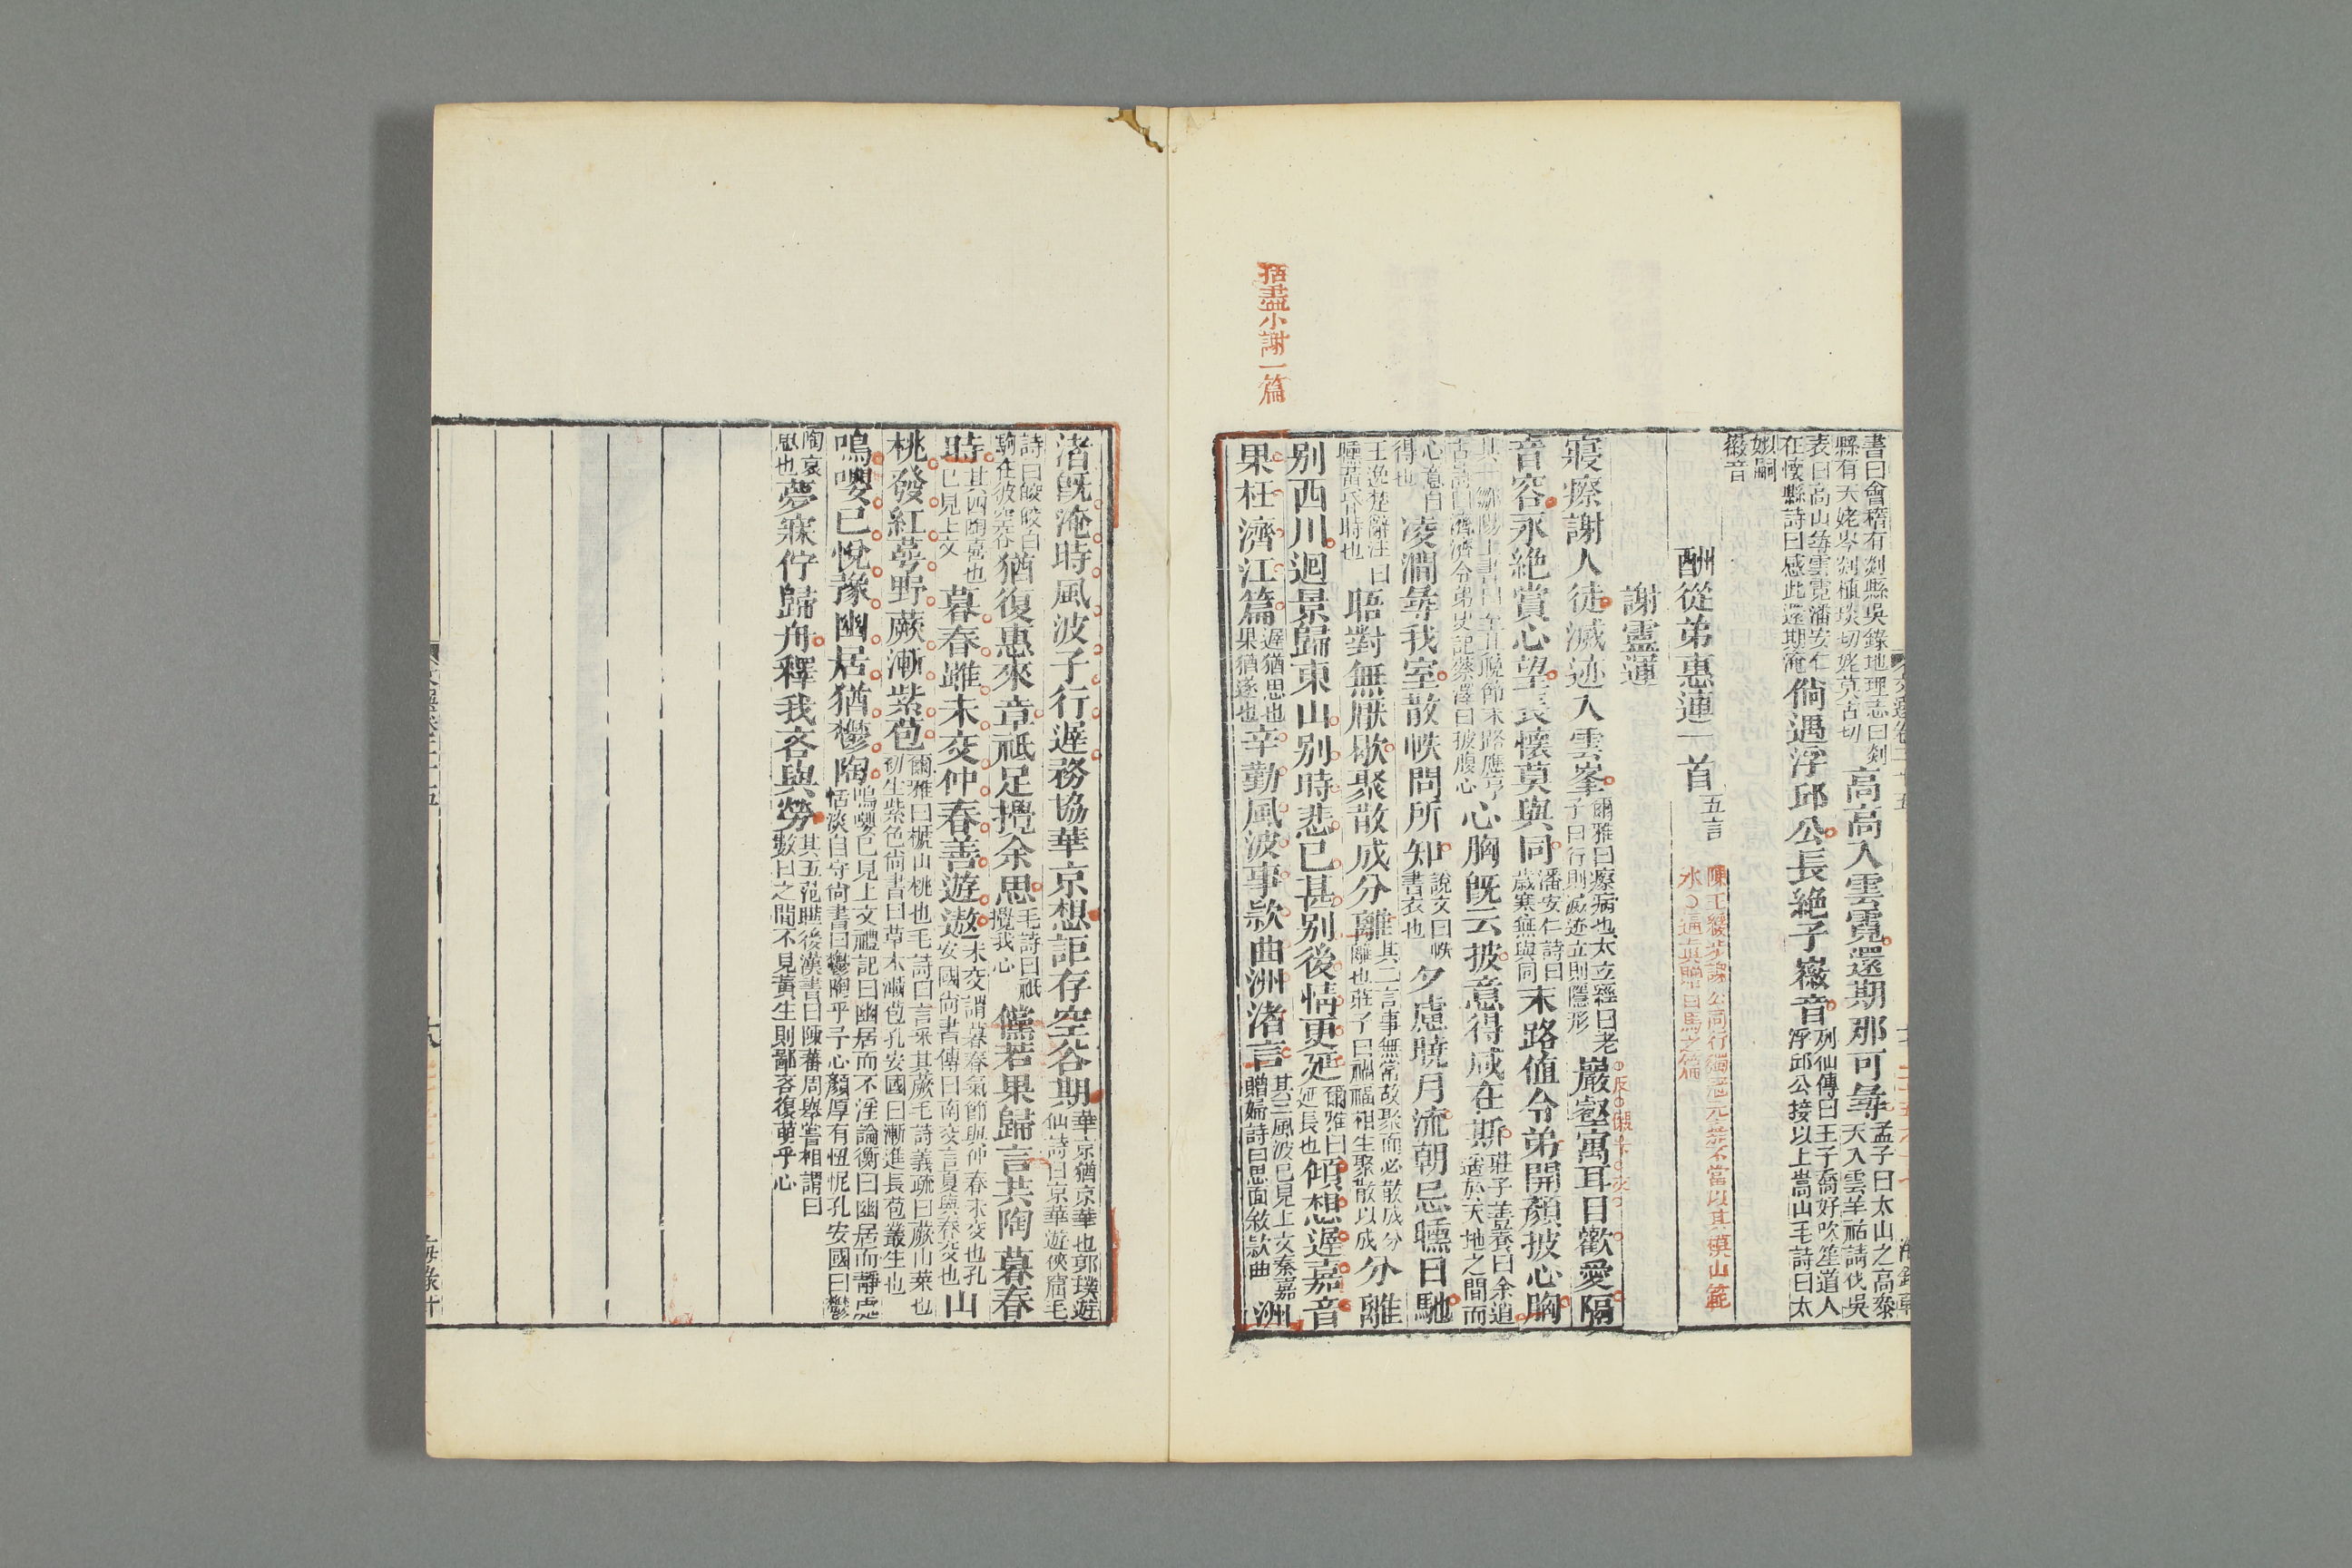 書曰會稽有剡縣吳錄地理志曰剡
縣有天姥岑剡植琰切姥莫古切
高高入雲霓還期那可尋
孟子曰太山之高參
天入雲羊祜請伐吳
表曰高山尋雲霓潘安仁
在懷縣詩曰感此還期淹
倘遇浮邱公長絶子嶶音
列仙傳曰王子喬好吹笙道人
浮邱公接以上嵩山毛詩曰太
姒嗣
嶶音
酬從弟惠連一首
五言
謝靈運
寢瘵謝人徒滅迹入雲峯
爾雅曰瘵病也太立經曰老
子曰行則滅迹立則隱形
巖壑寓耳目歡愛隔
音容永絶賞心望長懷莫與同
潘安仁詩曰
歲寒無與同
末路值令弟開顏披心胸
其一鄒陽上書曰至其晚節末路應亨
古詩曰濟濟令弟史記蔡澤曰披腹心
心胸旣云披意得咸在斯
莊子善卷曰余逍
遙於天地之間而
心意自
得也
凌澗尋我室散帙問所知
說文曰帙
書衣也
夕慮曉月流朝忌曛日馳
王逸楚辭注曰
曛黃昏時也
晤對無厭歇聚散成分離
其二言事無常故聚而必散成分
離也莊子曰禍福相生聚散以成
分離
别西川迴景歸東山别時悲已甚别後情更延
爾雅曰
延長也
傾想遲嘉音
果枉濟江篇
遲猶思也
果猶遂也
辛勤風波事款曲洲渚言
其三風波已見上文秦嘉
贈婦詩曰思面敘款曲
洲
猺盡小謝一篇
渚旣淹時風波子行遲務協華京想詎存空谷期
華京猶京華也郭璞遊
仙詩曰京華遊俠窟毛
詩曰皎皎白
駒在彼空谷
猶復惠來章祇足攪余思
毛詩曰祇
攪我心
儻若果歸言共陶暮春
時
其四陶喜也
已見上文
暮春雖未交仲春善遊遨
未交謂暮春氣節與仲春未交也孔
安國尚書傳曰南交言夏與春交也
山
桃發紅萼野蕨漸紫苞
爾雅曰榹山桃也毛詩曰言采其蕨毛詩義疏曰蕨山菜也
初生紫色尚書曰草木漸苞孔安國曰漸進長苞叢生也
鳴嚶已悅豫幽居猶鬱陶
鳴嚶已見上文禮記曰幽居而不淫論衡曰幽居而靜處
恬淡自守尚書曰鬱陶乎予心顏厚有忸怩孔安國曰鬱
陶哀
思也
夢寐佇歸舟釋我吝與勞
其五范曄後漢書曰陳蕃周舉嘗相謂曰
數日之間不見黃生則鄙吝復萌乎心